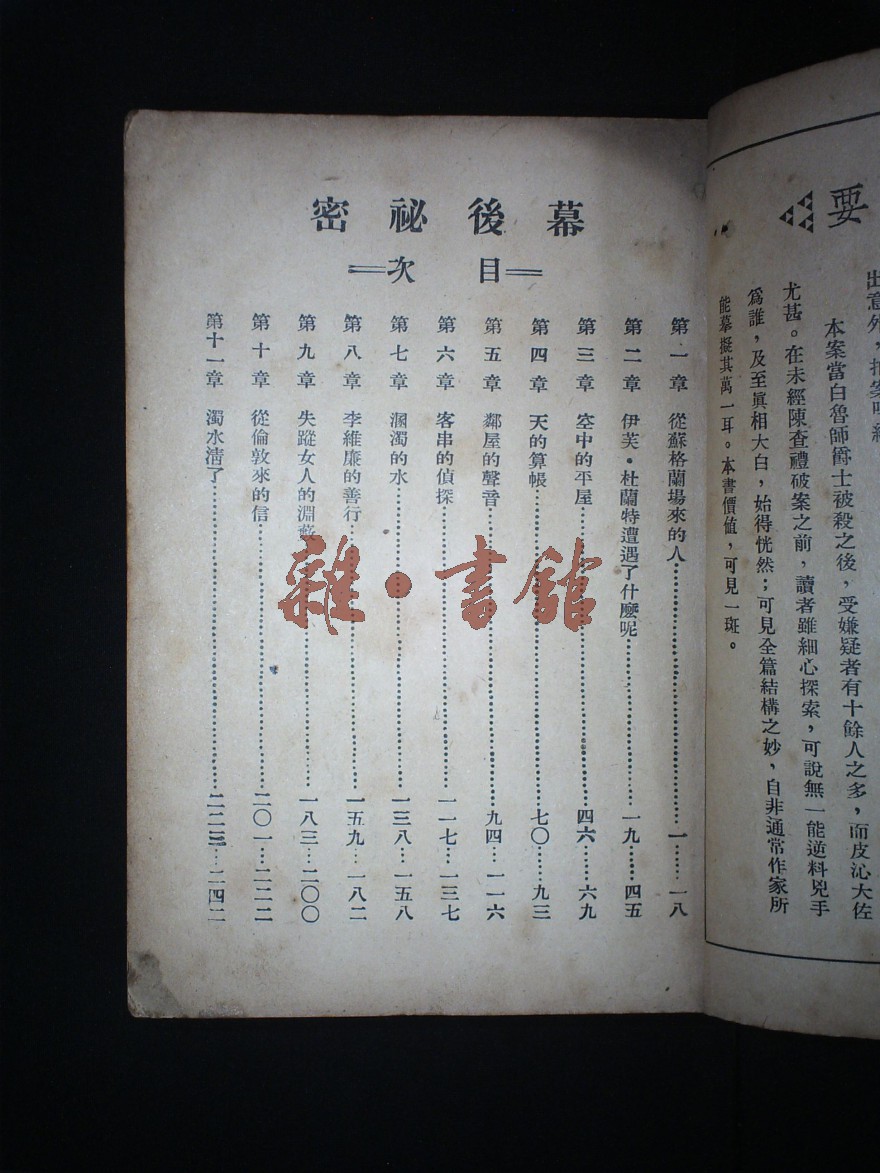 要
出意外，拍案
本案當白魯師爵士被殺之後，受嫌疑者有十餘人之多，而皮沁大佐
尤甚。在未經陳查禮破案之前，讀者雖細心探索，可說無一能逆料兇手
為誰，及至眞相大白，始得恍然；可見全篇結構之妙，自非通常作家所
能摹擬其萬一耳。本書價值，可見一斑。
幕後祕密
目次
第一章 從蘇格蘭場來的人……一……一八
第二章 伊芙•杜蘭特遭遇了什麼呢……一九…四五
第三章 空中的平屋……四六……六九
第四章 天的算帳……七〇……九三
第五章 鄰屋的聲音……九四…一一六
第六章 客串的偵探……一一七…一三七
第七章 溷濁的水……一三八…一五八
第八章 李維廉的善行……一五九…一八二
第九章 失蹤女人的淵藪……一八三…二〇〇
第十章 從倫敦來的信……二〇一…二二二
第十一章 濁水淸了……二二三…二四二
雜•書館